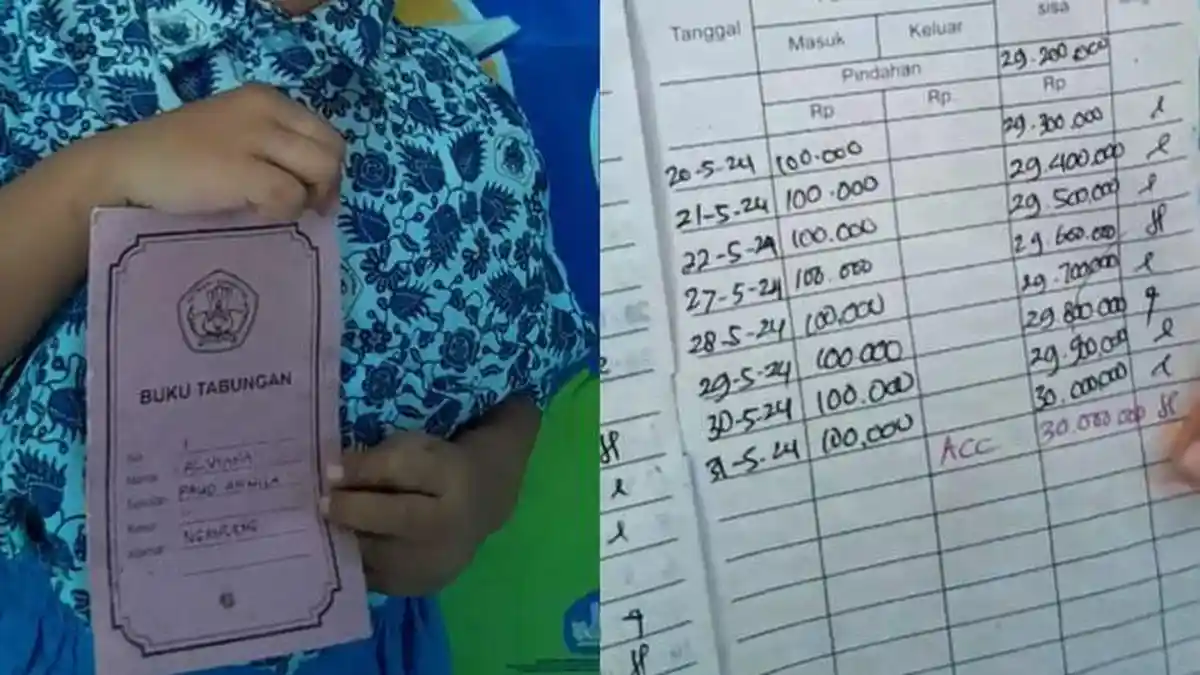 BUKU TABUNGAN
No
Nama
PAUD
Alamat
Tanggal
Masuk
Keluar
sisa
Pindahan
29.200.000
Rp
Rp
Rp
20-5-24 100.000 29.300.000
21-5-24 100.000 29.400.000
22-5-24 100.000 29.500.000
27-5-24 100.000 29.600.000
28-5-24 100.000 29.700.000
29-5-24 100.000 29.800.000
30-5-24 100.000 29.900.000
31-5-24 100.000 30.000.000
ACC 30.000.000